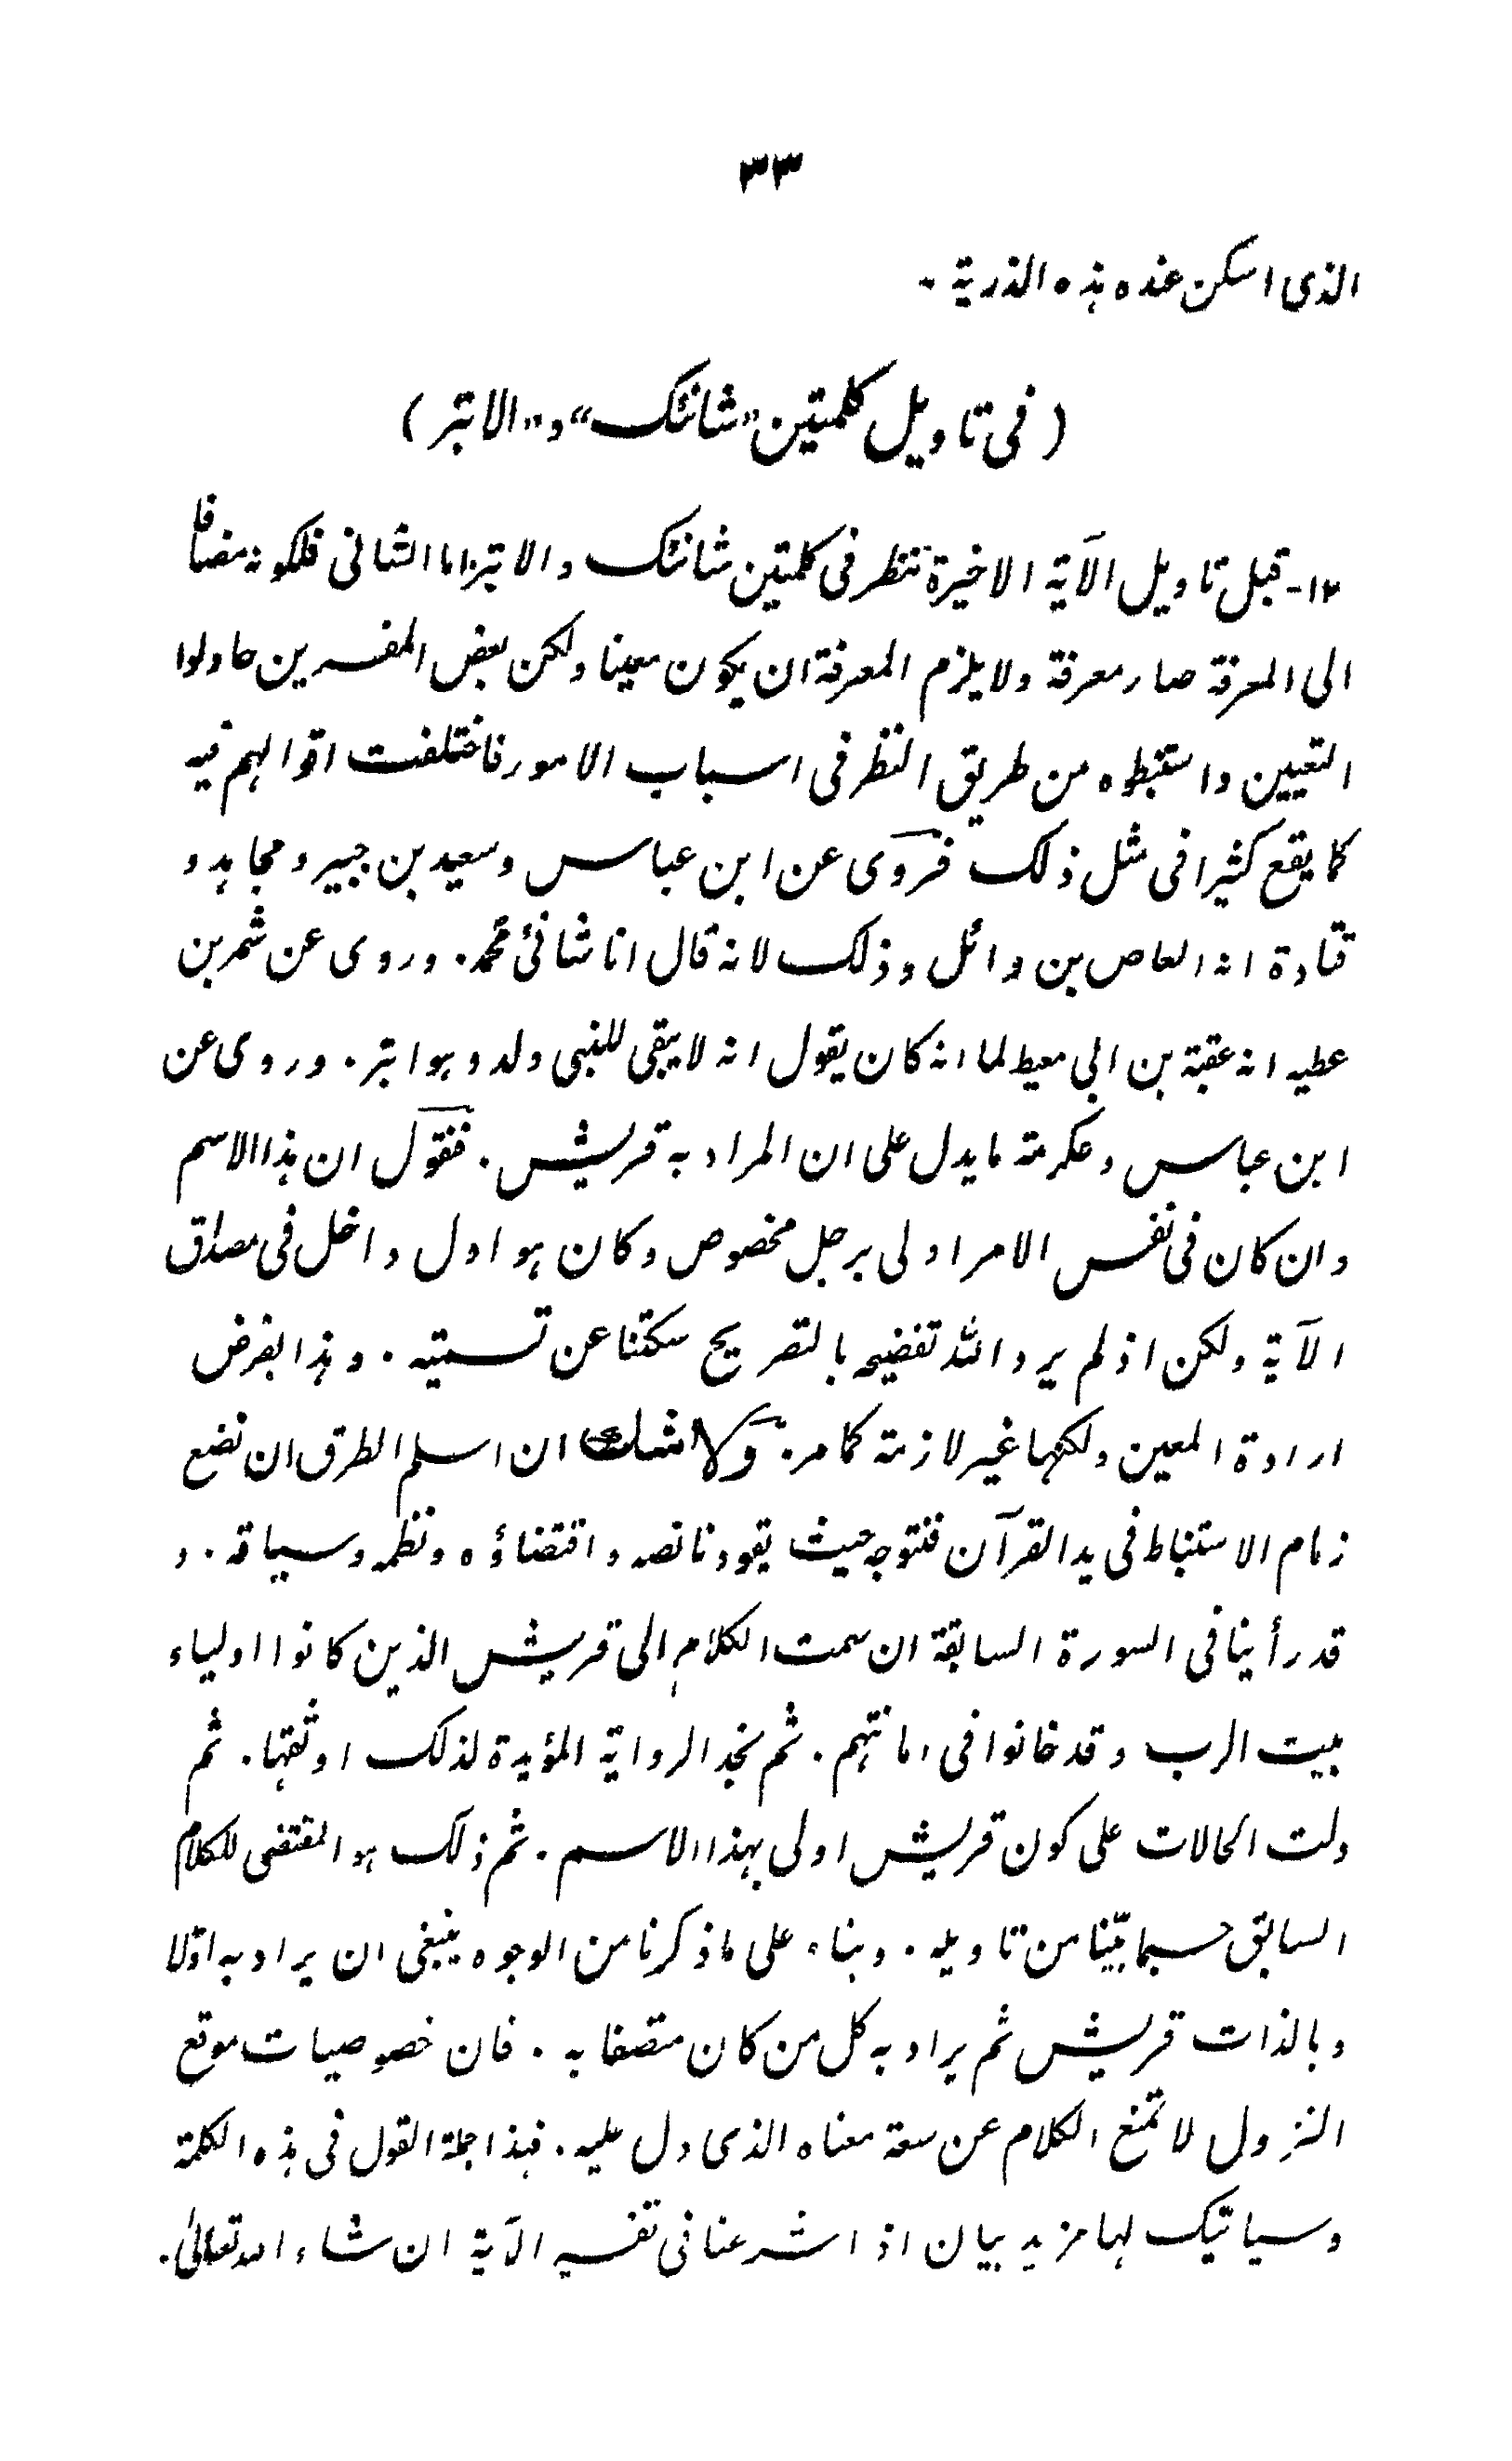 ٣٣
الذى اسكن عنده هذه الذرية ۔
(فى تاويل كلمتين "شانئك" و "الابتر)
١٢- قبل تاويل الآية الاخيرة ننظر فى كلمتين شانئك والابتر: اما الشانى فلكونه مضافا
الى المعرفة صار معرفة ولا يلزم المعرفة ان يكون معينا ولكن بعض المفسرين حاولوا
التعيين واستنبطوه من طريق النظر فى اسباب الامور فاختلفت اقوالهم فيه
كما يقع كثيرا فى مثل ذلك فروى عن ابن عباس وسعيد بن جبير ومجاهد و
قتادة انه العاص بن وائل وذلك لانه قال انا شانئ محمد. وروى عن شمر بن
عطيه انه عقبة بن ابى معيط لما انه كان يقول انه لا يبقى للنبى ولد وهو ابتر. وروى عن
ابن عباس وعكرمة ما يدل على ان المراد به قريش. فنقول ان هذا الاسم
وان كان فى نفس الامر اولى برجل مخصوص وكان هو اول داخل فى مصداق
الآية ولكن اذ لم يرد الله تفضيحه بالتصريح سكتنا عن تسميته. وهذا بفرض
ارادة المعين ولكنها غير لازمة كما مر. ولا شك ان اسلم الطرق ان نضع
زمام الاستنباط فى يد القرآن فنتوجه حيث يقودنا نصه واقتضاؤه ونظمه وسياقه. و
قد رأينا فى السورة السابقة ان سمت الكلام الى قريش الذين كانوا اولياء
بيت الرب وقد خانوا فى امانتهم. ثم نجد الرواية المؤيدة لذلك اوثقها. ثم
دلت الحالات على كون قريش اولى بهذا الاسم. ثم ذلك هو المقتضى للكلام
السابق حسبما بيّنا من تاويله. وبناء على ما ذكرنا من الوجوه ينبغى ان يراد به اوّلا
وبالذات قريش ثم يراد به كل من كان متصفا به. فان خصوصيات موقع
النزول لا تمنع الكلام عن سعة معناه الذى دل عليه. فهذا جملة القول فى هذه الكلمة
وسياتيك لها مزيد بيان اذا شرعنا فى تفسير الآية ان شاء الله تعالىٰ.